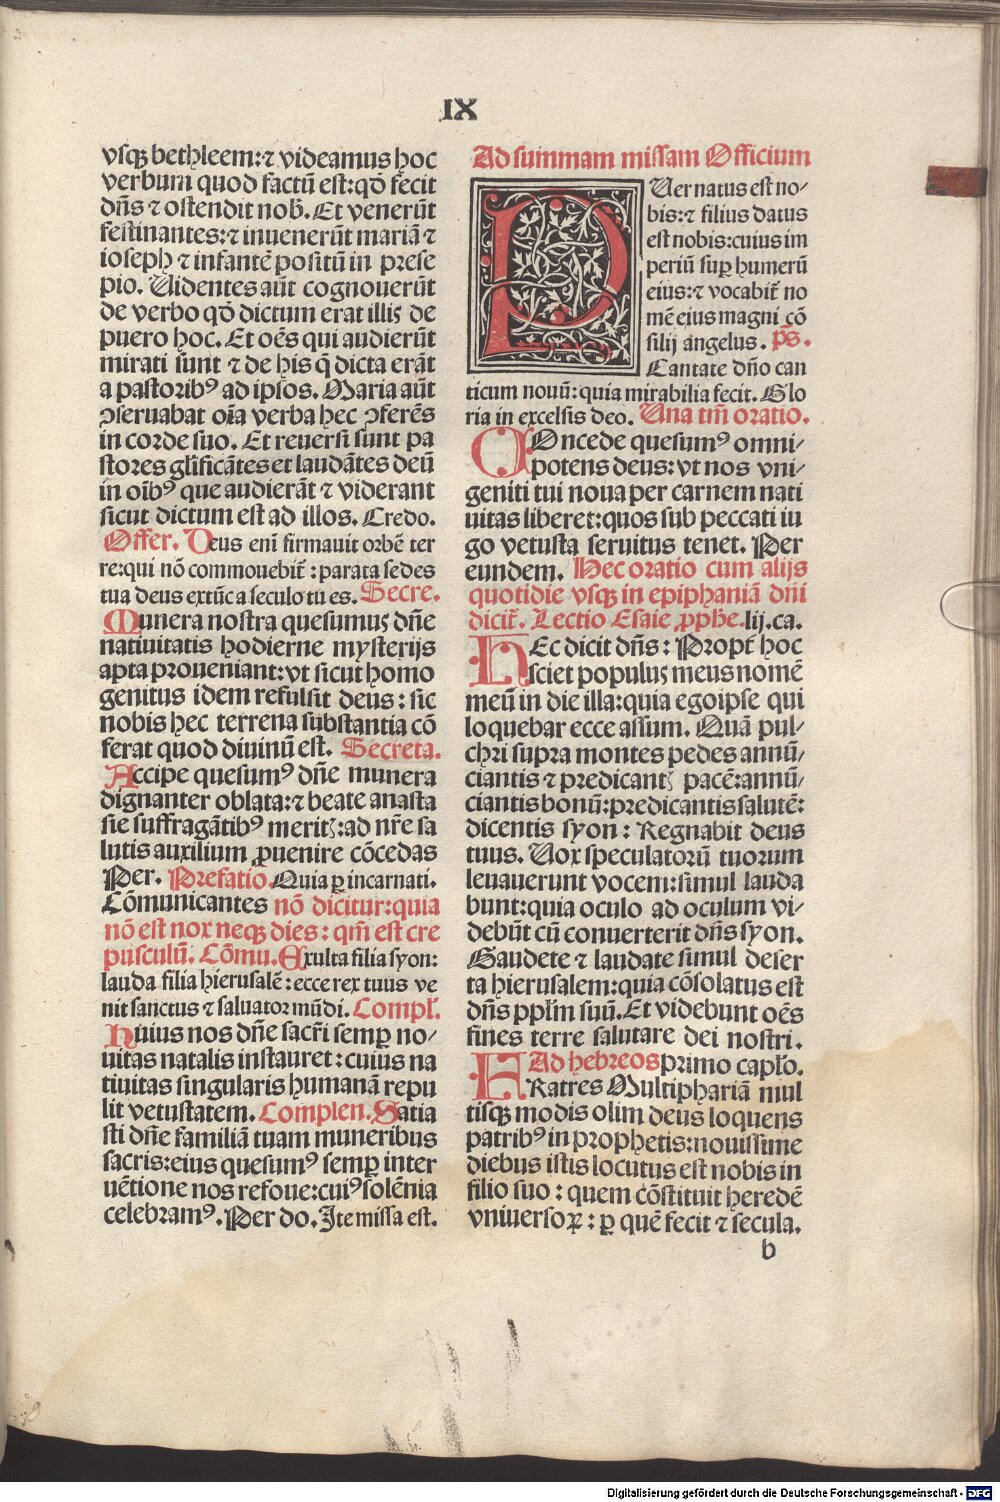 IX
vsqꝫ bethleem:⁊ videamus hoc
verbum quod factū est:qḋ fecit
dn̄s ⁊ ostendit nob̄. Et venerūt
festinantes:⁊ inuenerūt mariā ⁊
ioseph ⁊ infantē positū in prese
pio. Uidentes aūt cognouerūt
de verbo qḋ dictum erat illis de
puero hoc. Et oēs qui audierūt
mirati sunt ⁊ de his q̄ dicta erāt
a pastoribꝰ ad ipsos. Maria aūt
ꝯseruabat oīa verba hec ꝯferēs
in corde suo. Et reuersi sunt pa
stores gl̄ificātes et laudātes deū
in oībꝰ que audierāt ⁊ viderant
sicut dictum est ad illos. Credo.
Offer. Deus enī firmauit orbē ter
re:qui nō commouebit̄ : parata sedes
tua deus extūc a seculo tu es. Secre.
Munera nostra quesumus dn̄e
natiuitatis hodierne mysterijs
apta proueniant:vt sicut homo
genitus idem refulsit deus : sic
nobis hec terrena substantia cō
ferat quod diuinū est. Secreta.
Accipe quesumꝰ dn̄e munera
dignanter oblata:⁊ beate anasta
sie suffragātibꝰ meritꝭ:ad nr̄e sa
lutis auxilium ꝓuenire cōcedas
Per. Prefatiō Quia ꝑ incarnati.
Cōmunicantes nō dicitur:quia
nō est nox neqꝫ dies : qm̄ est cre
pusculū. Cōmu. Exulta filia syon:
lauda filia hierusalē : ecce rex tuus ve
nit sanctus ⁊ saluator mūdi. Compl̄.
Huius nos dn̄e sacr̄i semꝑ no/
uitas natalis instauret : cuius na
tiuitas singularis humanā repu
lit vetustatem. Complen. Satia
sti dn̄e familiā tuam muneribus
sacris:eius quesumꝰ semꝑ inter
uētione nos refoue:cuiꝰ solēnia
celebramꝰ. Per do. Ite missa est.
Ad summam missam Officium
PUer natus est no/
bis:⁊ filius datus
est nobis:cuius im
periū suꝑ humerū
eius:⁊ vocabit̄ no
mē eius magni cō
silij angelus . p̄s.
Cantate dn̄o can
ticum nouū: quia mirabilia fecit. Glo
ria in excelsis deo. Una tm̄ oratio.
COncede quesumꝰ omni/
potens deus: vt nos vni/
geniti tui noua per carnem nati
uitas liberet:quos sub peccati iu
go vetusta seruitus tenet. Per
eundem. Hec oratio cum alijs
quotidie vsqꝫ in epiphaniā dn̄i
dicit̄. Lectio Esaie ꝓph̄e. lij.ca.
HEc dicit dn̄s : Propt̄ hoc
sciet populus meus nomē
meū in die illa:quia ego ipse qui
loquebar ecce assum. Quā pul/
chri supra montes pedes annū/
ciantis ⁊ predicantꝭ pacē:annū/
ciantis bonū:predicantis salutē:
dicentis syon : Regnabit deus
tuus. Uox speculatorū tuorum
leuauerunt vocem:simul lauda
bunt:quia oculo ad oculum vi/
debūt cū conuerterit dn̄s syon.
Gaudete ⁊ laudate simul deser
ta hierusalem:quia cōsolatus est
dn̄s ppl̄m suū. Et videbunt oēs
fines terre salutare dei nostri.
Ad hebreos primo capl̄o.
FRatres Multiphariā mul
tisqꝫ modis olim deus loquens
patribꝰ in prophetis:nouissime
diebus istis locutus est nobis in
filio suo : quem cōstituit heredē
vniuersoꝝ : ꝑ quē fecit ⁊ secula.
b
Digitalisierung gefördert durch die Deutsche Forschungsgemeinschaft - DFG